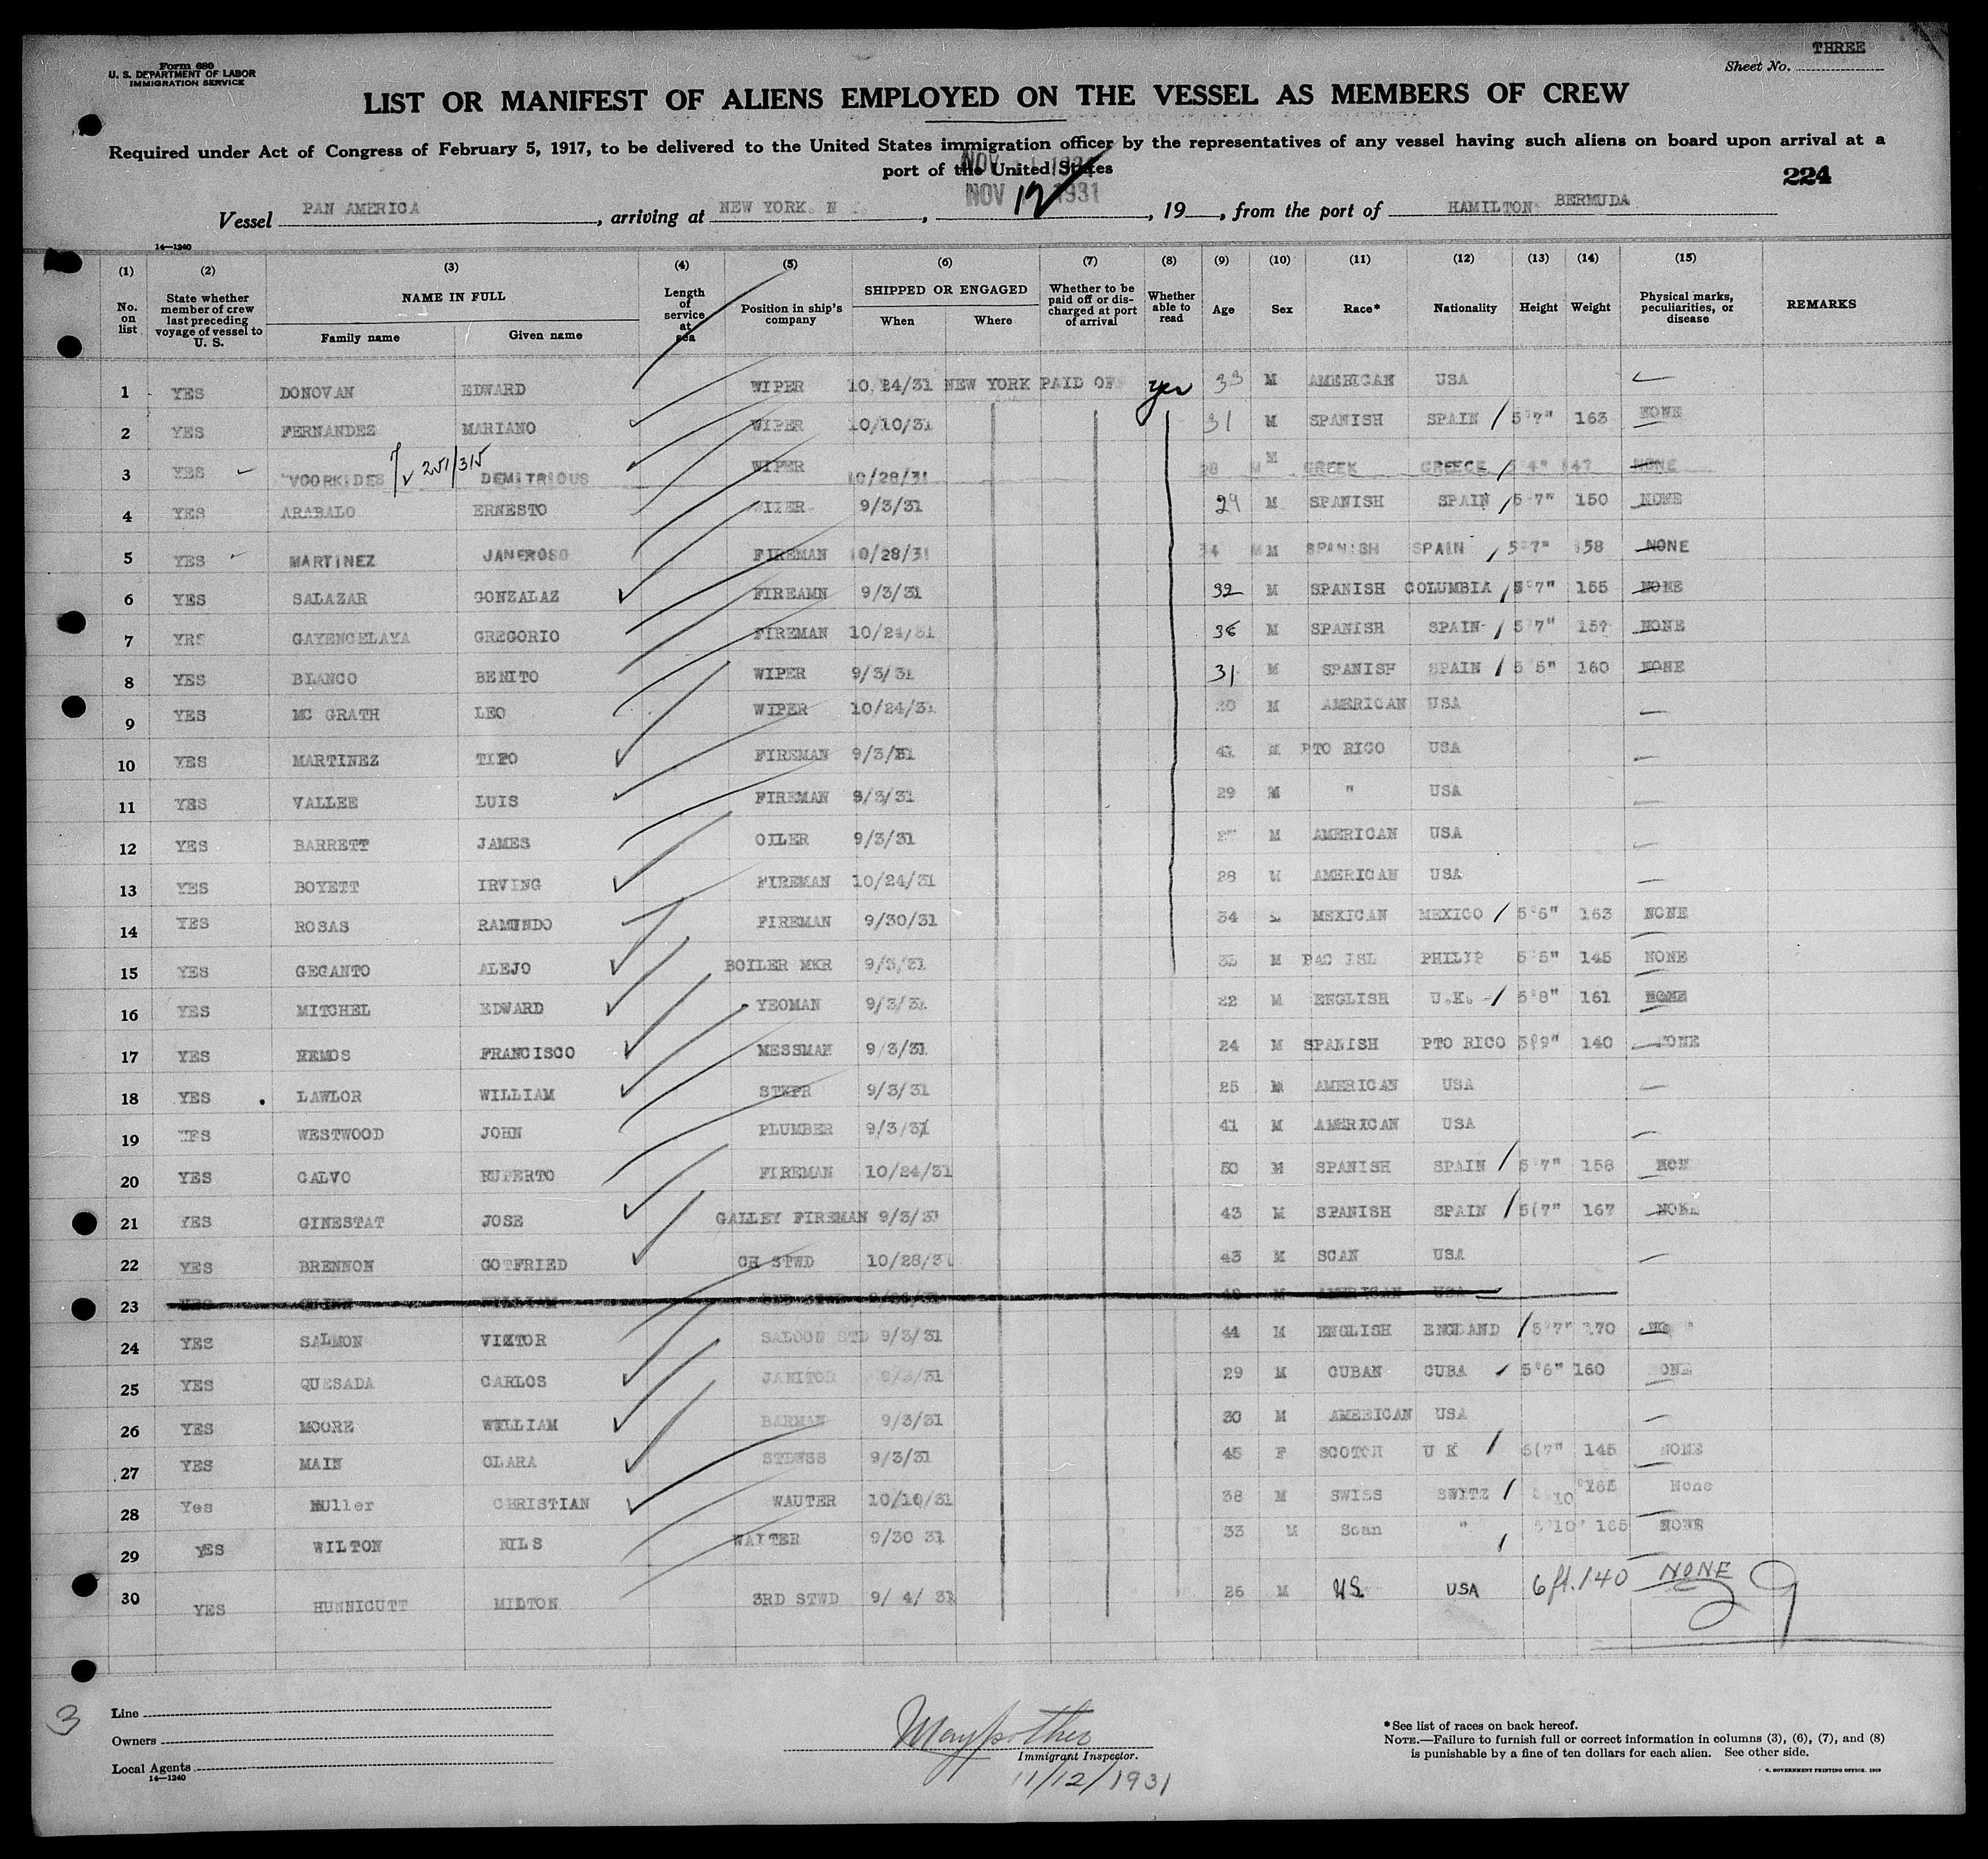 THREE
Sheet No.
Form 680
U. S. DEPARTMENT OF LABOR
IMMIGRATION SERVICE
LIST OR MANIFEST OF ALIENS EMPLOYED ON THE VESSEL AS MEMBERS OF CREW
Required under Act of Congress of February 5, 1917, to be delivered to the United States immigration officer by the representatives of any vessel having such aliens on board upon arrival at a
port of the United States
224
NOV 1931
Vessel PAN AMERICA, arriving at NEW YORK. N , NOV 12 1931, 19 , from the port of HAMILTON BERMUDA
14—1240
(1) (2) (3) (4) (5) (6) (7) (8) (9) (10) (11) (12) (13) (14) (15)
No. on list State whether member of crew last preceding voyage of vessel to U. S. NAME IN FULL Family name Given name Length of service at sea Position in ship's company SHIPPED OR ENGAGED When Where Whether to be paid off or discharged at port of arrival Whether able to read Age Sex Race* Nationality Height Weight Physical marks, peculiarities, or disease REMARKS
1 YES DONOVAN EDWARD WIPER 10/24/31 NEW YORK PAID OFF yes 33 M AMERICAN USA
2 YES FERNANDEZ MARIANO WIPER 10/10/31 31 M SPANISH SPAIN 5'7" 163 NONE
3 YES VOORKIDES 251/315 DEMITRIOUS WIPER 10/28/31 28 M GREEK GREECE 5'4" 147 NONE
4 YES ARABALO ERNESTO WIPER 9/3/31 29 M SPANISH SPAIN 5'7" 150 NONE
5 YES MARTINEZ JANEROSO FIREMAN 10/28/31 34 M SPANISH SPAIN 5'7" 158 NONE
6 YES SALAZAR GONZALAZ FIREAMN 9/3/31 32 M SPANISH COLUMBIA 5'7" 155 NONE
7 YRS GAYENCELAYA GREGORIO FIREMAN 10/24/31 36 M SPANISH SPAIN 5'7" 157 NONE
8 YES BLANCO BENITO WIPER 9/3/31 31 M SPANISH SPAIN 5'5" 160 NONE
9 YES MC GRATH LEO WIPER 10/24/31 20 M AMERICAN USA
10 YES MARTINEZ TITO FIREMAN 9/3/31 41 M PTO RICO USA
11 YES VALLEE LUIS FIREMAN 9/3/31 29 M " USA
12 YES BARRETT JAMES OILER 9/3/31 M AMERICAN USA
13 YES BOYETT IRVING FIREMAN 10/24/31 28 M AMERICAN USA
14 YES ROSAS RAMUNDO FIREMAN 9/30/31 34 MEXICAN MEXICO 5'6" 163 NONE
15 YES GEGANTO ALEJO BOILER MKR 9/3/31 M PAC ISL PHILIP 5'5" 145 NONE
16 YES MITCHEL EDWARD YEOMAN 9/3/31 22 M ENGLISH U.K. 5'8" 161 NONE
17 YES FRANCISCO MESSMAN 9/3/31 24 M SPANISH PTO RICO 5'9" 140 NONE
18 YES LAWLOR WILLIAM STKPR 9/3/31 25 M AMERICAN USA
19 YES WESTWOOD JOHN PLUMBER 9/3/31 41 M AMERICAN USA
20 YES CALVO RUPERTO FIREMAN 10/24/31 50 M SPANISH SPAIN 5'7" 158 NON
21 YES GINESTAT JOSE GALLEY FIREMAN 9/3/31 43 M SPANISH SPAIN 5(7" 167 NONE
22 YES BRENNON GOTFRIED CH STWD 10/28/31 43 M SCAN USA
23 WILLIAM M AMERICAN USA
24 YES SALMON VIKTOR SALOON STD 9/3/31 44 M ENGLISH ENGLAND 5'7" 170
25 YES QUESADA CARLOS JANITOR 9/3/31 29 M CUBAN CUBA 5'6" 160 ONE
26 YES MOORE WILLIAM BARMAN 9/3/31 30 M AMERICAN USA
27 YES MAIN CLARA STDWSS 9/3/31 45 F SCOTCH U K 5(7" 145 NONE
28 Yes Muller CHRISTIAN WAUTER 10/10/31 38 M SWISS SWITZ 5'10 165 None
29 YES WILTON NILS WAITER 9/30 31 33 M Scan " 5'10" 165 NONE
30 YES HUNNICUTT MILTON 3RD STWD 9/ 4/ 31 26 M US USA 6 ft. 140 NONE
3
Line
Owners
Local Agents
14—1240
Immigrant Inspector.
11/12/1931
*See list of races on back hereof.
NOTE.—Failure to furnish full or correct information in columns (3), (6), (7), and (8)
is punishable by a fine of ten dollars for each alien. See other side.
GOVERNMENT PRINTING OFFICE. 1919